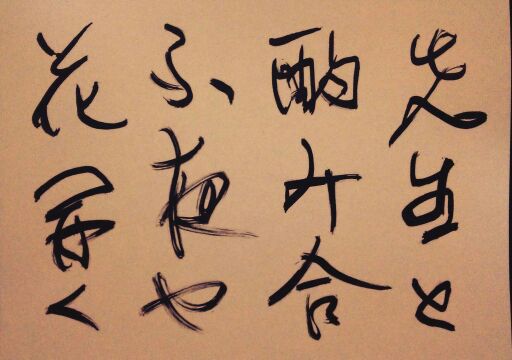 先生と
酌み合
ふ夜や
花開く